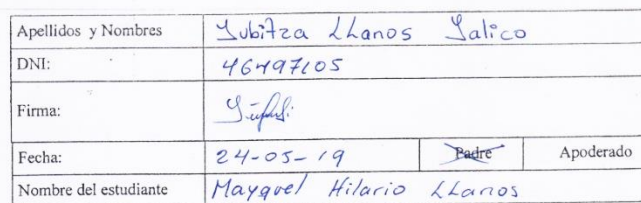 Apellidos y Nombres Yubitza LLanos Salico
DNI: 46497105
Firma:
Fecha: 24-05-19 Padre Apoderado
Nombre del estudiante Mayquel Hilario LLanos